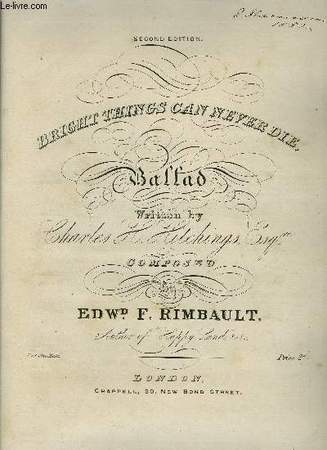 SECOND EDITION.
BRIGHT THINGS CAN NEVER DIE,
Ballad
Written by
Charles H. Hitchings, Esqre.
COMPOSED
BY
EDWD. F. RIMBAULT,
Author of Happy Land &c.
Price 2s/
LONDON,
CHAPPELL, 50, NEW BOND STREET.
Le-livre.com